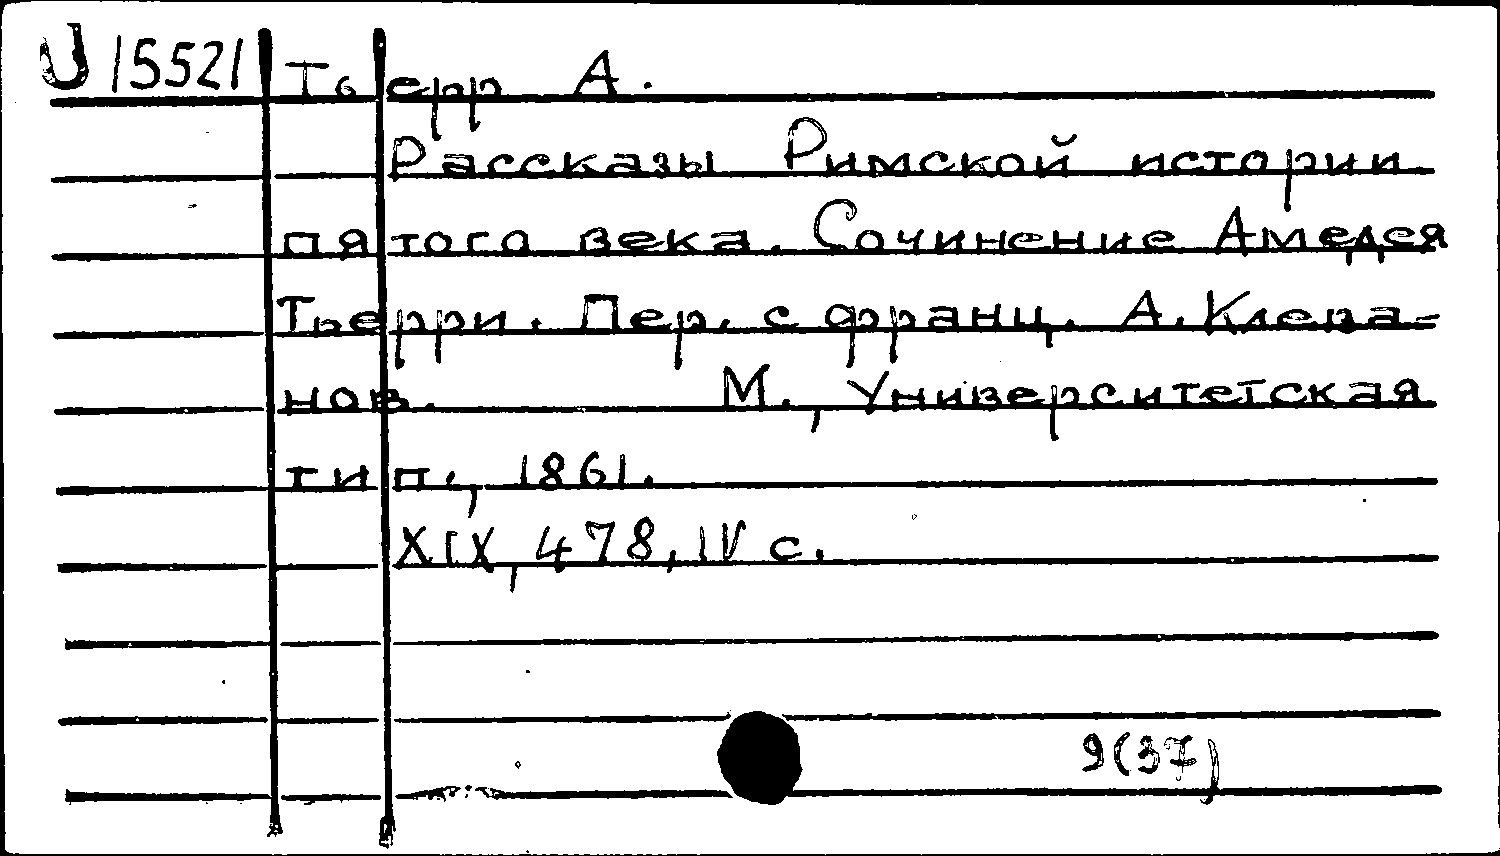 U 15521 Тьерр А.
Рассказы Римской истории
пятого века. Сочинение Амедея
Тьерри. Пер. с франц. А. Клева-
нов. М., Университетская
тип., 1861.
XIX, 478, IV с.
9(37)